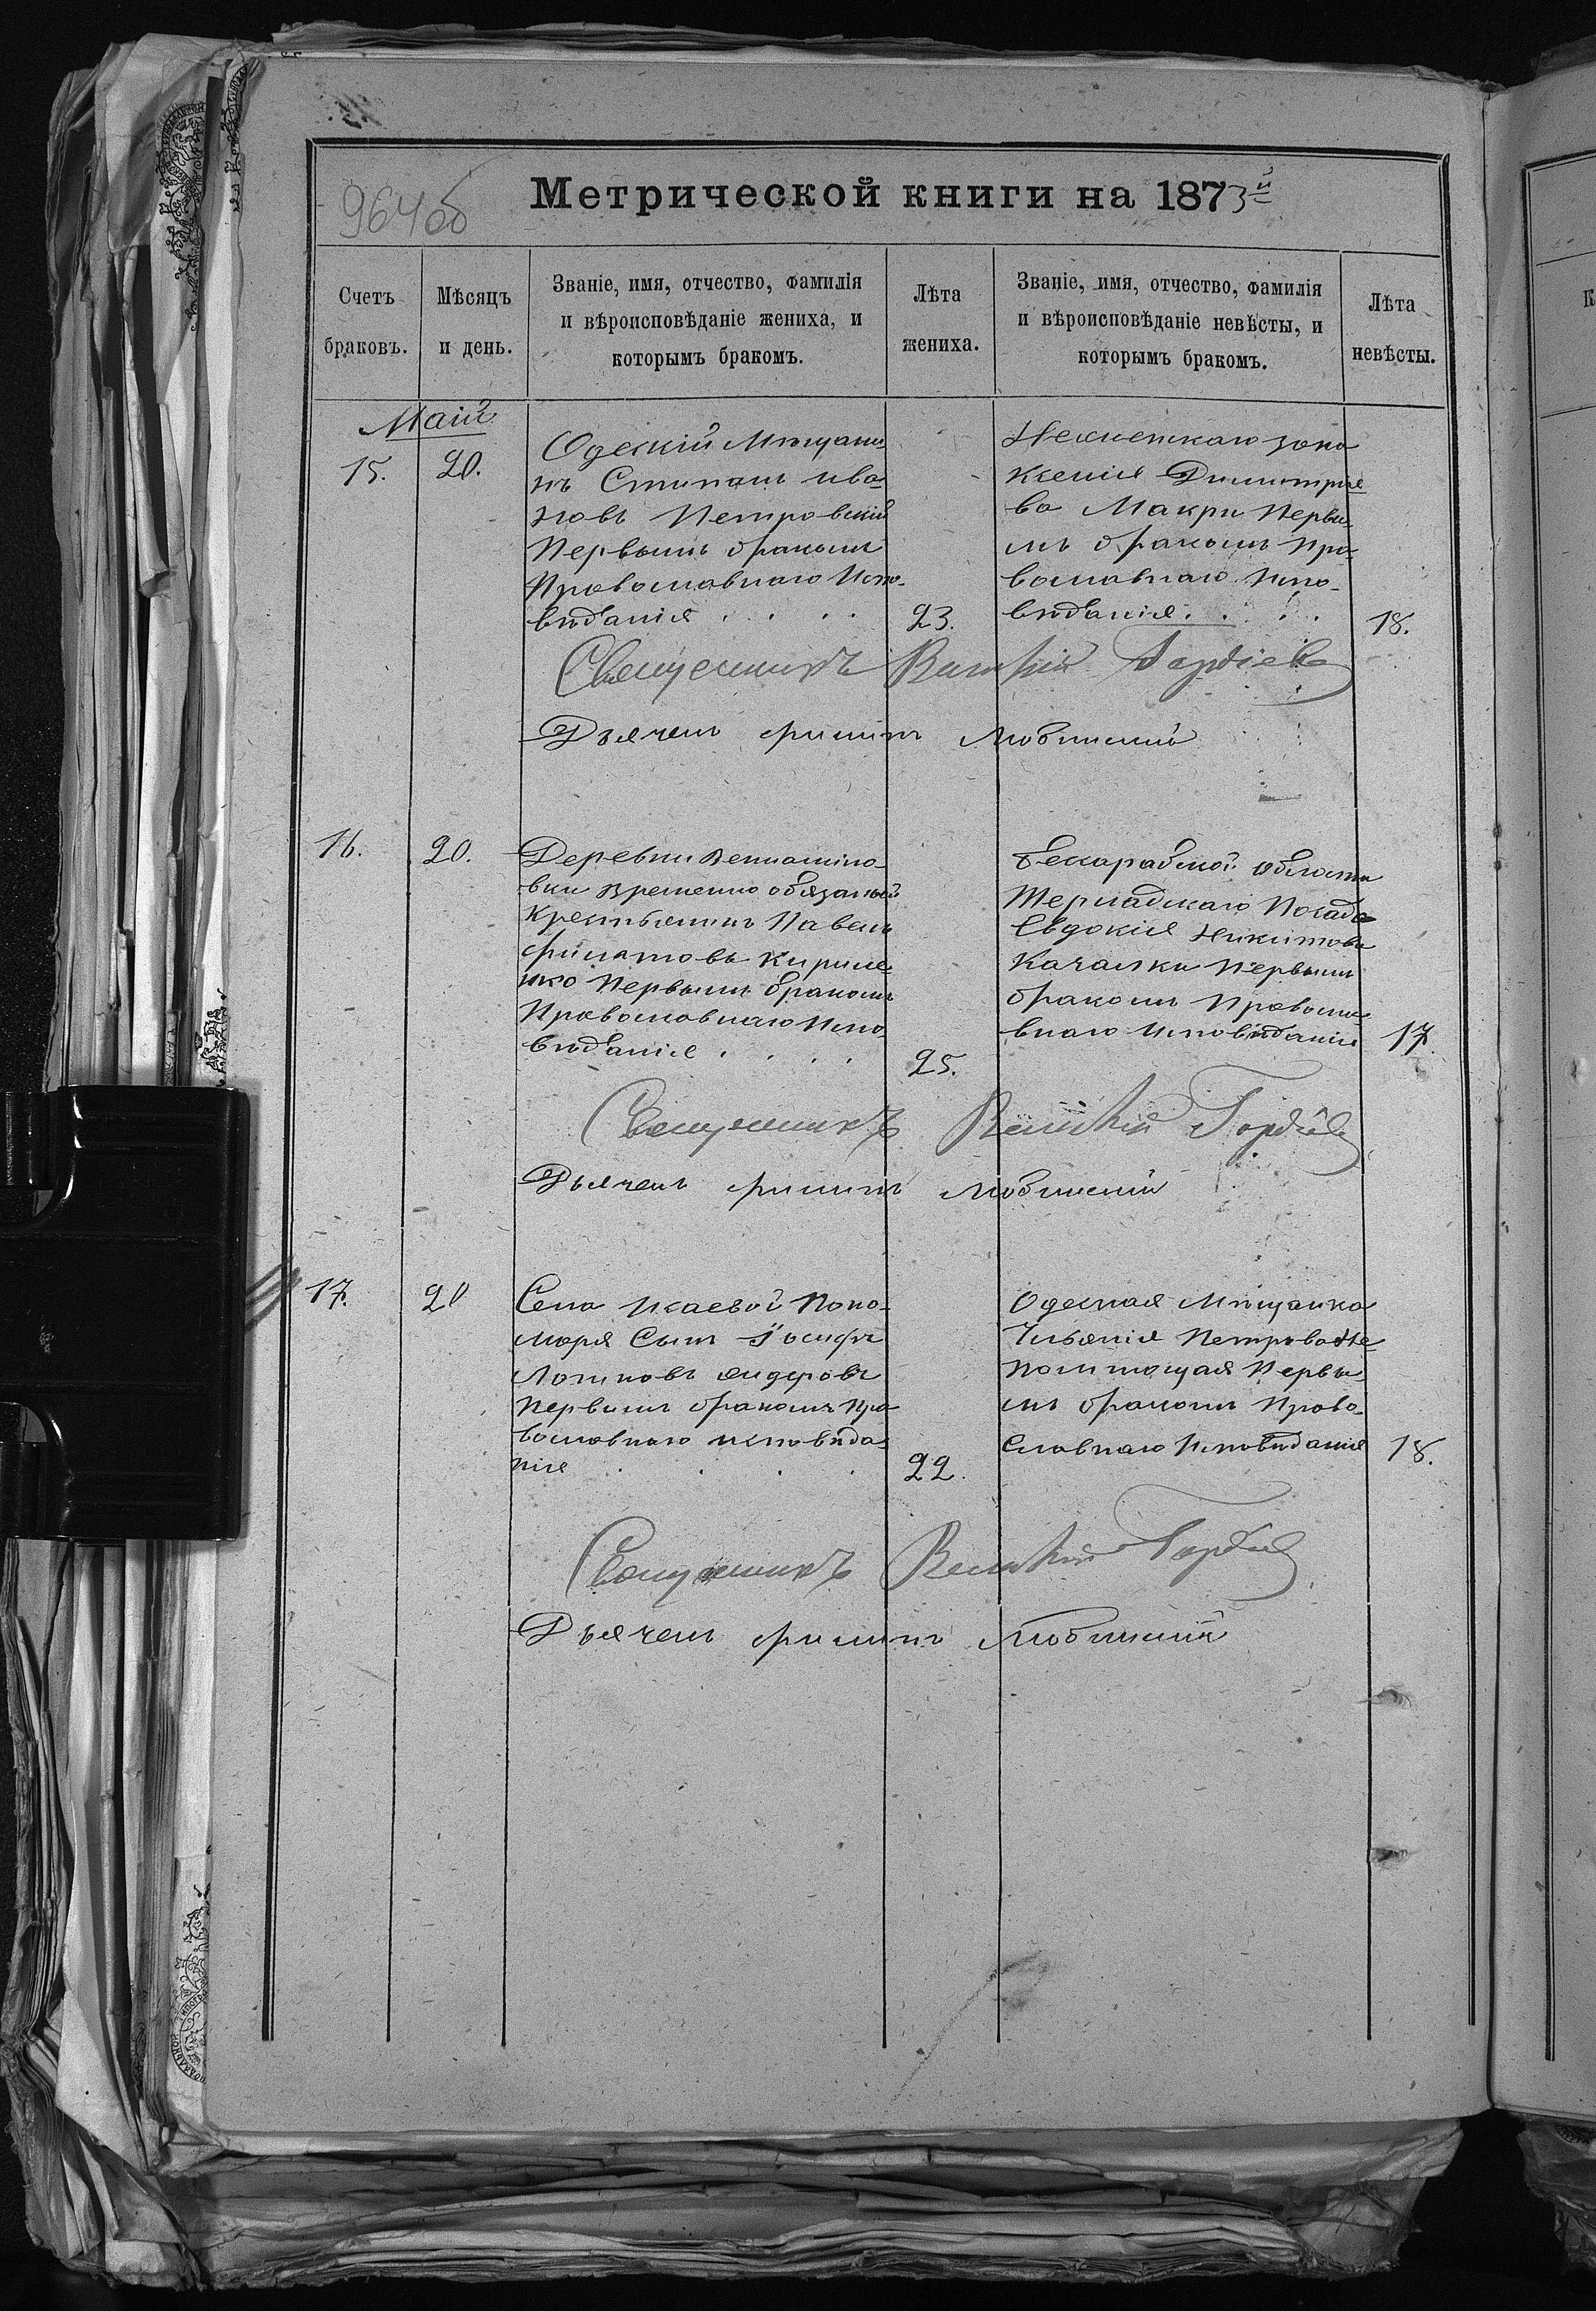 964об
Метрической книги на 1873й
Счетъ браковъ.
Мѣсяцъ и день.
Званіе, имя, отчество, фамилія
и вѣроисповѣданіе жениха, и
которымъ бракомъ.
Лѣта жениха.
Званіе, имя, отчество, фамилія
и вѣроисповѣданіе невѣсты, и
которымъ бракомъ.
Лѣта невѣсты.
Маій
15.
20.
Одескій Мѣщани-
нъ Стипанъ Ива-
новъ Петровскій
Первымъ бракомъ
Православнаго Испо-
вѣданія . . . .
23.
Ксенія Димитріе
ва Макри Первы-
мъ бракомъ Пра-
вославнаго Испо-
вѣданія. . . .
18.
Священникъ Гордіевъ
Дьячекъ Филипъ Любинскій
16.
20.
Деревни Вениаміно-
вки Временно обязаный
Крестьянинъ Павелъ
Филатовъ Кириле-
нко Первымъ бракомъ
Православнаго Испо-
вѣданія . . . .
25.
Бесарабской области
Посада
Евдокія Никитова
Качалки Первымъ
бракомъ Правосла-
внаго Исповѣданія
17.
Священникъ Гордіевъ
Дьячекъ Филипъ Любинскій
17.
20
Села Исаевой Поно-
маря Сынъ Іосифъ
Логиновъ
Первымъ бракомъ Пра-
вославнаго исповѣда-
нія . . . .
22.
Одеская Мѣщанка
Ульянія Петрова Не-
Первы-
мъ бракомъ Право-
славнаго Исповѣданія
18.
Священникъ Гордіевъ
Дьячекъ Филипъ Любинскій